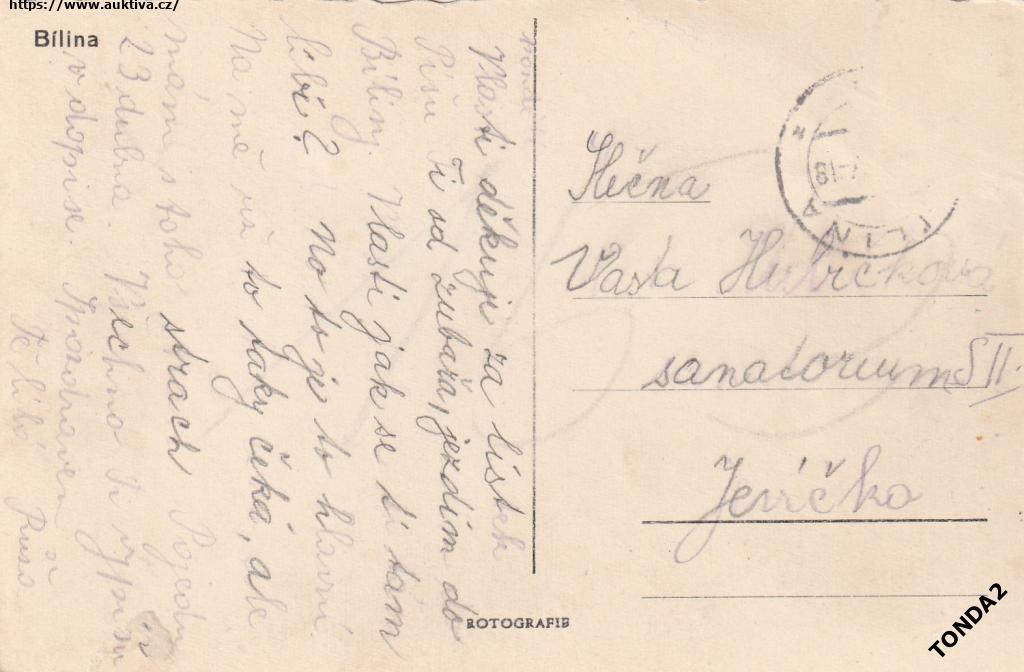 https://www.auktiva.cz/
Bílina
Vlasti děkuji za lístek
Píšu Ti od zubaře, jezdím do
Bíliny. Vlasti jak se ti tam
líbí? No to je to hlavní
Na mě už to taky čeká, ale
mám s toho strach Pojedu
23 dubna. Všechno Ti vypíšu
v dopise.
Tě líbá
Slečna
Vasta Hubičkova
sanatorium S II.
Jevíčko
ROTOGRAFIE
TONDA2